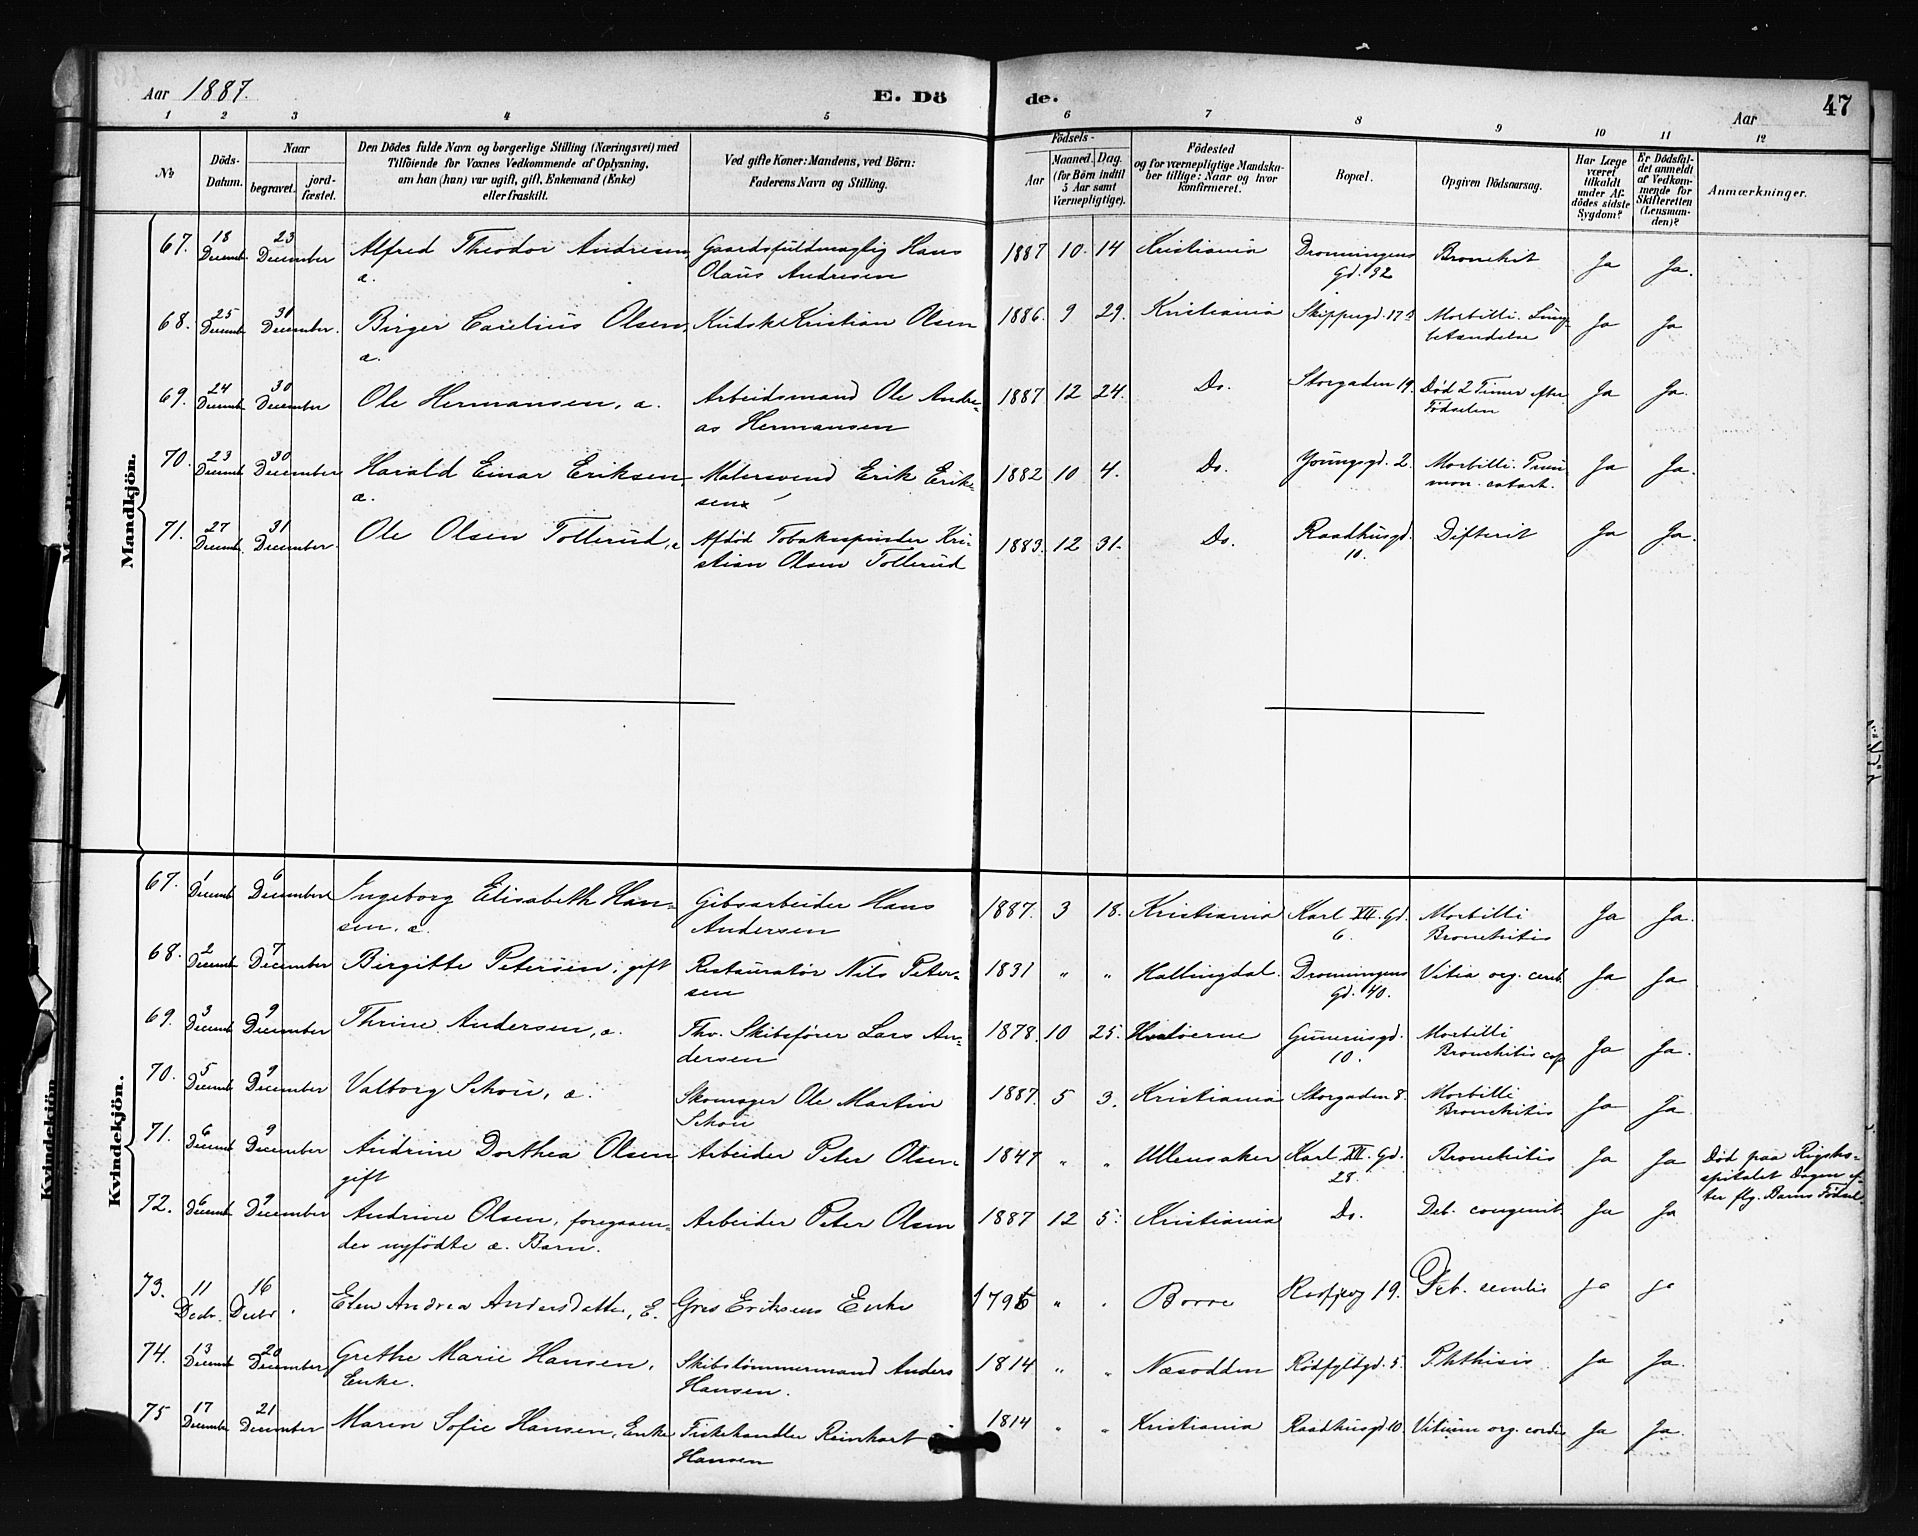 Aar 1887.
E. Döde.
Aar
47
1 2 3 4 5 6 7 8 9 10 11 12
№
Döds-Datum.
Naar
begravet.
jord-fæstet.
Den Dödes fulde Navn og borgerlige Stilling (Næringsvei) med
Tilföiende for Voxnes Vedkommende af Oplysning,
om han (hun) var ugift, gift, Enkemand (Enke)
eller fraskilt.
Ved gifte Koner: Mandens, ved Börn:
Faderens Navn og Stilling.
Födsels-
Aar
Maaned. Dag.
(for Börn indtil
5 Aar samt
Værnepligtige).
Födested
og for værnepligtige Mandska-
ber tillige: Naar og hvor
konfirmeret.
Bopæl.
Opgiven Dödsaarsag.
Har Læge
været
tilkaldt
under Af-
dödes sidste
Sygdom?
Er Dödsfal-
det anmeldt
af Vedkom-
mende for
Skifteretten
(Lensman-
den)?
Anmærkninger.
Mandkjön.
67. 18 Decemb. 23 December Alfred Theodor Andresen, Gaardsfuldmægtig Hans 1887 10. 14 Kristiania Dronningens Bronchit Ja Ja.
æ. Olaus Andresen Gd. 32
68. 25 Decemb. 30 December. Birger Olsen, Kudsk Kristian Olsen 1886. 9 29. Kristiania Skippergd. 17 Morbilli. Lung- Ja Ja
æ. betændelse
69. 24 Decemb. 30 December Ole Hermansen, æ. Arbeidsmand Ole Andre- 1887 12 24. Do. Storgaden 19. Død 2 Timer efter Ja Ja.
as Hermansen Fødselen
70. 23 Decemb. 30 December Harald Einar Eriksen, Malersvend Erik Erik- 1882 10 4. Do. Youngsgd. 2. Morbilli. Pneu- Ja Ja.
æ. sen mon. catarh.
71. 27 Decemb. 31 December. Ole Olsen Tollerud, æ Afdød Tobaksspinder Kri- 1883. 12 31. Do. Raadhusgd. Difterit Ja Ja.
stian Olsen Tollerud 10.
Kvindekjön.
67. 1 Decemb 6 December Ingeborg Elisabeth Han- Gibsarbeider Hans 1887. 3 18. Kristiania Karl XII. Gd. Morbilli Ja Ja.
sen. æ. Andersen 6. Bronchitis
68. 2 Decemb 7 December Birgitte Petersen, gift Restauratør Nils Peter- 1831 " " Hallingdal. Dronningens Vitia org. cereb. Ja Ja
sen Gd. 40.
69. 3 Decemb 9 December Thrine Andersen, æ. Fhv. Skibsfører Lars An- 1878. 10 25. Hvaløerne Gunerusgd. Morbilli Ja Ja.
dersen 10. Bronchitis cap
70. 5 Decemb 9 December Valborg Schou, æ. Skomager Ole Martin 1887. 5 3. Kristiania Storgaden 8. Morbilli Ja Ja
Schou Bronchitis
71. 6 Decemb 9 December Andrine Dorthea Olsen Arbeider Peter Olsen. 1847 " " Ullensaker Karl XII. Gd. Bronchitis Ja Ja Død paa Rigsho-
gift 28. spitalet Dagen ef-
ter flg. Barns Fødsel
72. 6 Decemb 9 December Andrine Olsen, foregaaen- Arbeider Peter Olsen 1887 12 5. Kristiania Do. Deb. congenit. Ja Ja
des nyfødte æ. Barn.
73. 11 Decbr. 16 Decbr Elen Andrea Andersdatter, E. Eriksens Enke " " Borre 19. Deb. senilis ja ja
74. 13 Decemb 20 December Grethe Marie Hansen, Skibstømmermand Anders 1814 " " Næsodden Rødfyldgd. 5. Phthisis Ja Ja.
Enke. Hansen.
75 17 Decembe 21 December Maren Sofie Hansen, Enke Fiskehandler Reinhart 1814 " " Kristiania Raadhusgd. 10. Vitium org. cordis Ja Ja.
Hansen